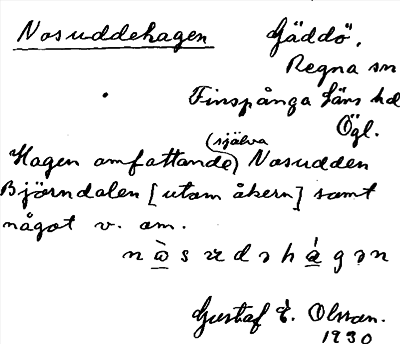 Nosuddehagen Gäddö,
Regna sn
Finspånga läns hd
Ögl.
Hagen omfattande (själva) Nosudden
Björndalen [utom åkern] samt
något v. om.
Gustaf E. Olsson.
1930